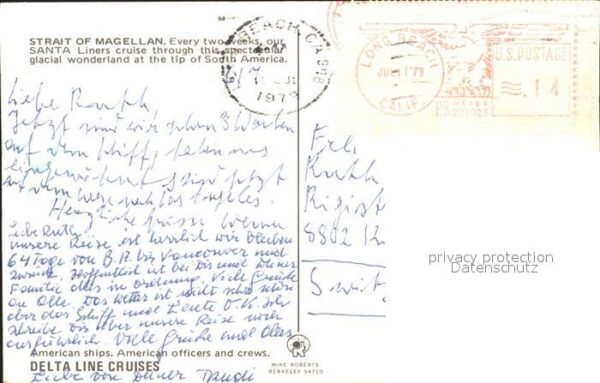 STRAIT OF MAGELLAN. Every two weeks, our
SANTA Liners cruise through this spectacular
glacial wonderland at the tip of South America.
BEACH, CA 908
1979
LONG BEACH
CALIF.
U.S. POSTAGE
.14
Liebe Ruth
Jetzt sind wir schon 3 Wochen
auf dem Schiff, haben uns
eingewöhnt sind jetzt
auf dem Wege nach Los Angeles.
Herzliche Grüsse Werner
Liebe Ruth,
unsere Reise ist herrlich wir bleiben
64 Tage von B.A. bis Vancouver und
zurück. Hoffentlich ist bei Dir und Deiner
Familie alles in Ordnung. Viele Grüsse
an Alle. Das Wetter ist nicht sehr schön
aber das Schiff und Leute O.K. Ich
schreibe Dir über unsere Reise noch
ausführlich. Viele Grüsse und Alles
Liebe von Deiner
Frl.
Ruth
8802
privacy protection
Datenschutz
American ships. American officers and crews.
DELTA LINE CRUISES
MIKE ROBERTS
BERKELEY 94710